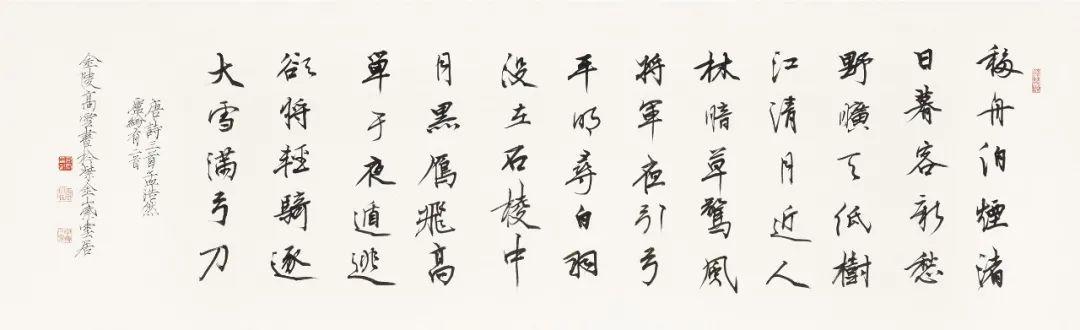 移舟泊煙渚
日暮客新愁
野曠天低樹
江清月近人
林暗草驚風
將軍夜引弓
平明尋白羽
沒在石棱中
月黑鴈飛高
單于夜遁逃
欲將輕騎逐
大雪滿弓刀
唐詩三首孟浩然
盧綸有二首
金陵高雲書於紫金山藏雲居